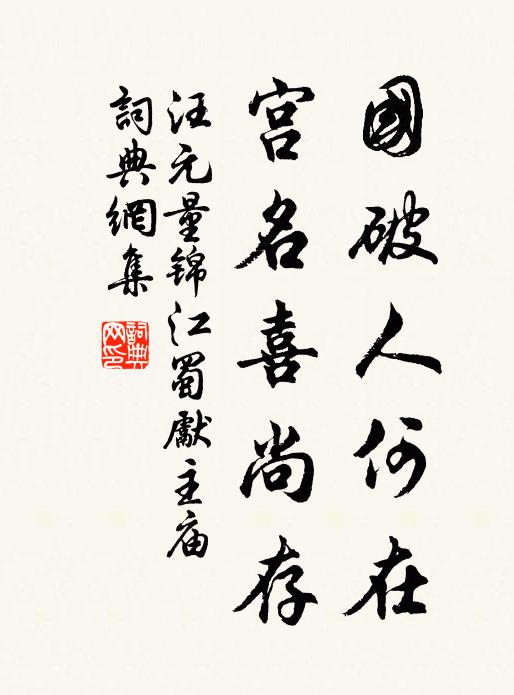 國破人何在
宮名喜尚存
汪元量錦江蜀獻主庙
詞典網集
詞典网印